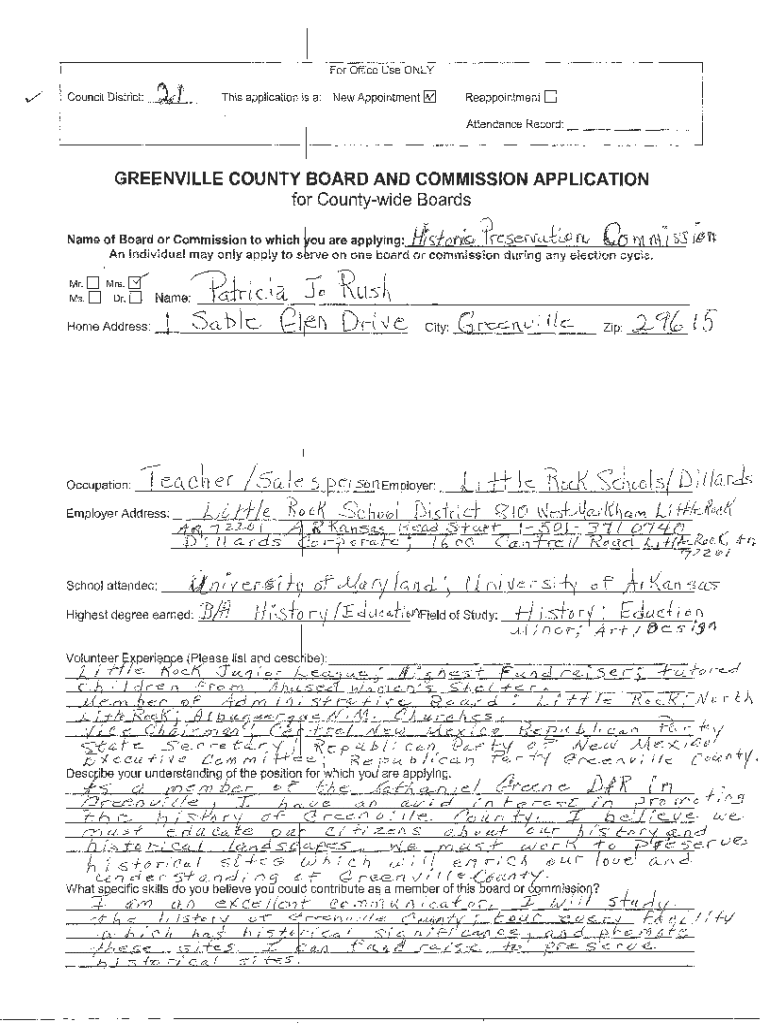 For Office Use ONLY
✓ Council District: 21 This application is a: New Appointment ☑ Reappointment ☐
Attendance Record:
GREENVILLE COUNTY BOARD AND COMMISSION APPLICATION
for County-wide Boards
Name of Board or Commission to which you are applying: Historic Preservation Commission
An individual may only apply to serve on one board or commission during any election cycle.
Mr. ☐ Mrs. ☑
Ms. ☐ Dr. ☐ Name: Patricia Jo Rush
Home Address: 1 Sable Glen Drive City: Greenville Zip: 29615
Occupation: Teacher/Salesperson Employer: Little Rock Schools/Dillards
Employer Address: Little Rock School District 810 West Markham Little Rock
AR 72201 ARKansas Head Start 1-501-371 0740
Dillards Corporate; 1600 Cantrell Road Little Rock, AR
72201
School attended: University of Maryland; University of Arkansas
Highest degree earned: B/A History/Education Field of Study: History; Eduction
Minor; Art/Design
Volunteer Experience (Please list and describe):
Little Rock Junior League; Highest Fundraiser; tutored
children from Abused Women's Shelter.
Member of Administrative Board: Little Rock; North
Little Rock; Albuquerque N.M. Churches.
Vice Chairman; Central New Mexico Republican Party
State Secretary; Republican Party of New Mexico
Executive Committee; Republican Party Greenville County.
Describe your understanding of the position for which you are applying.
As a member of the Nathaniel Greene DAR in
Greenville, I have an avid interest in promoting
the history of Greenville County. I believe we
must educate our citizens about our history and
historical landscapes. We must work to preserve
historical sites which will enrich our love and
understanding of Greenville County.
What specific skills do you believe you could contribute as a member of this board or commission?
I am an excellent communicator. I will study
the history of Greenville County; tour every facility
which has historical significance, and promote
these sites. I can fund raise to preserve
historical sites.